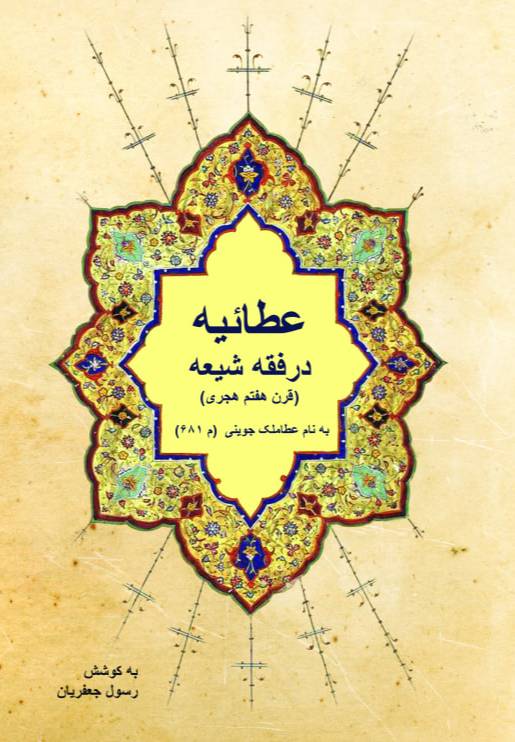 عطائیه
در فقه شیعه
(قرن هفتم هجری)
به نام عطاملک جوینی (م ۶۸۱)
به کوشش
رسول جعفریان